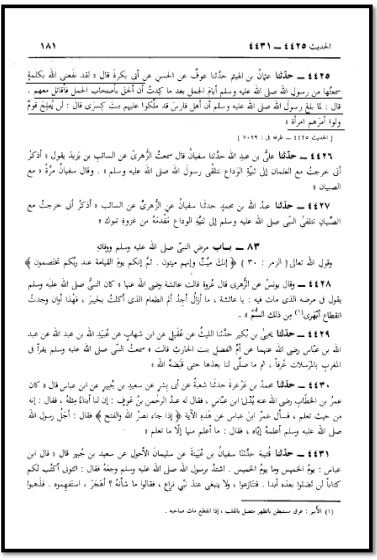 الحديث ٤٤٢٥ – ٤٤٣١ ١٨١
٤٤٢٥ – حدّثنا عثمانُ بن الهيثمِ حدَّثنا عوفٌ عن الحسنِ عن أبى بكرةَ قال « لقد نفعَنى اللهُ بكلمةٍ
سمعتُها من رسولِ اللهِ صلى الله عليه وسلم أيامَ الجمل بعد ما كِدتُ أن ألحقَ بأصحاب الجملِ فأقاتلَ معهم .
قال : لما بلغَ رسولَ اللهِ صلى الله عليه وسلم أن أهلَ فارسَ قد ملَّكوا عليهم بنتَ كِسرَى قال : لن يُفلِحَ قومٌ
ولَّوا أمرَهم امرأة »
[ الحديث ٤٤٢٥ – طرفه فى : ٧٠٩٩ ]
٤٤٢٦ – حدّثنا علىُّ بن عبدِ الله حدَّثنا سفيانُ قال سمعتُ الزُّهرىَّ عن السائبِ بن يزيدَ يقول « أذكرُ
أنى خرجتُ مع الغلمانِ إلى ثَنيَّةِ الوَداع نتلقَّى رسولَ الله صلى الله عليه وسلم » . وقال سفيانُ مرَّةً « مع
الصبيان »
٤٤٢٧ – حدّثنا عبدُ الله بن محمدٍ حدَّثنا سفيانُ عن الزُّهرىِّ عن السائبِ « أذكر أنى خرجتُ مع
الصِّبيانِ نتلقَّى النبىَّ صلى الله عليه وسلم إلى ثَنيَّةِ الوداع مَقدَمَهُ من غزوةِ تبوك »
٨٣ – باب مرضِ النبىِّ صلى الله عليه وسلم ووفاتِهِ
وقولِ الله تعالى [ الزمر : ٣٠ ] ﴿ إنكَ ميِّتٌ وإنهم ميتون . ثمَّ إنكم يومَ القيامةِ عندَ ربِّكم تختصمون ﴾
٤٤٢٨ – وقال يونسُ عن الزُّهرى قال عُروةُ قالت عائشةُ رضى الله عنها « كان النبىُّ صلى الله عليه وسلم
يقول فى مرضهِ الذى مات فيه : يا عائشة ، ما أزالُ أجِدُ ألَم الطعامِ الذى أكلتُ بخيبرَ ، فهذا أوانُ وجدتُ
انقطاعَ أَبْهَرِى(١) من ذلك السُّمِّ » .
٤٤٢٩ – حدّثنا يحيى بن بُكيرٍ حدَّثنا الليثُ عن عُقَيلٍ عن ابن شهابٍ عن عُبَيدِ الله بن عبدِ الله عن عبدِ
الله بن عبّاسٍ رضى الله عنهما عن أمِّ الفضل بنتِ الحارثِ قالت « سمعتُ النبىَّ صلى الله عليه وسلم يقرأُ فى
المغربِ بالمرسَلات عُرفاً ، ثم ما صلَّى لنا بعدَها حتى قبَضَهُ الله »
٤٤٣٠ – حدّثنا محمدُ بن عَرعرةَ حدَّثنا شعبةُ عن أبى بِشرٍ عن سعيدِ بن جُبيرٍ عن ابن عباسٍ « قال : كان
عمرُ بن الخطَّاب رضى الله عنه يُدْنى ابنَ عبّاس ، فقال له عبدُ الرحمن بنُ عَوفٍ : إن لنا أبناءً مثلَهُ . فقال : إنه
من حيثُ تعلم ، فسأل عمرُ ابنَ عباسٍ عن هذه الآيةِ ﴿ إذا جاءَ نصرُ اللهِ والفتح ﴾ فقال : أجَلُ رسولِ الله
صلى الله عليه وسلم أعلمهُ إيّاه ، فقال : ما أعلم منها إلّا ما تعلم »
٤٤٣١ – حدّثنا قُتيبةُ حدَّثنا سفيانُ بن عُيَينةَ عن سليمانَ الأحول عن سعيدِ بن جُبيرٍ قال « قال ابنُ
عباس : يومُ الخميسِ وما يومُ الخميس . اشتدَّ برسولِ الله صلى الله عليه وسلم وجعهُ فقال : ائتونى أكتبْ لكم
كتاباً لن تَضلوا بعدَه أبدا . فتنازَعوا ، ولا ينبغى عندَ نبىٍّ نِزاع ، فقالوا ما شأنُهُ ؟ أَهَجَرَ ، استفهِموه . فذهبوا
(١) الأبهر : عرق مستبطن بالظهر متصل بالقلب ، إذا انقطع مات صاحبه .